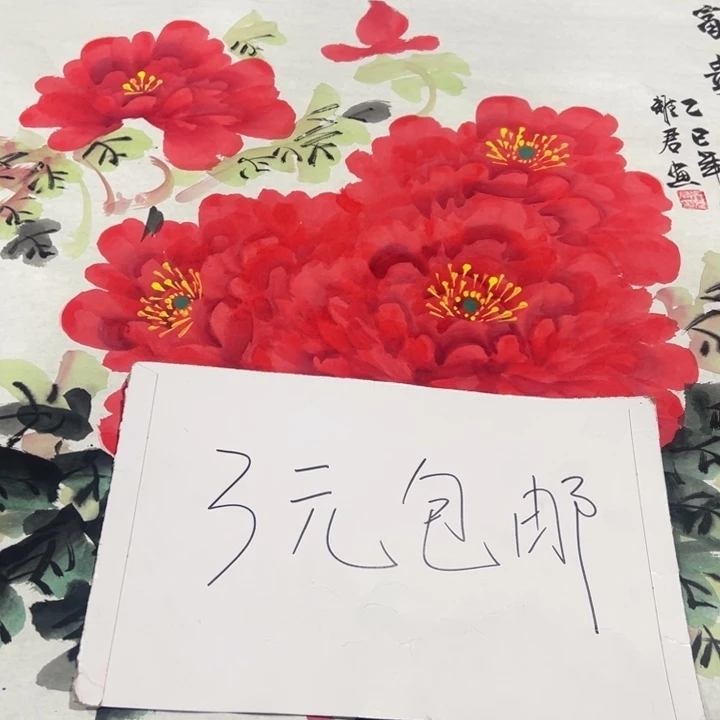 富贵
乙巳年
雅君画
3元包邮